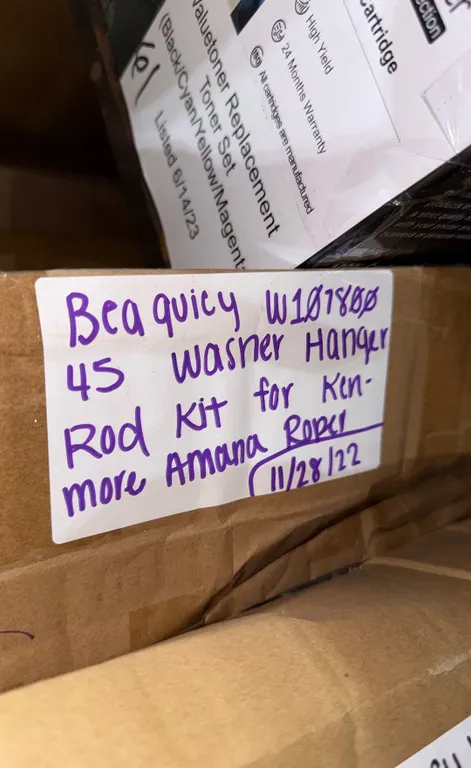 Cartridge
High Yield
24 Months Warranty
All cartridges are manufactured
Valuetoner Replacement
Toner Set
(Black/Cyan/Yellow/Magent
Listed 6/14/23
Beaquicy W107800
45 Washer Hanger
Rod Kit for Ken-
more Amana Roper
11/28/22